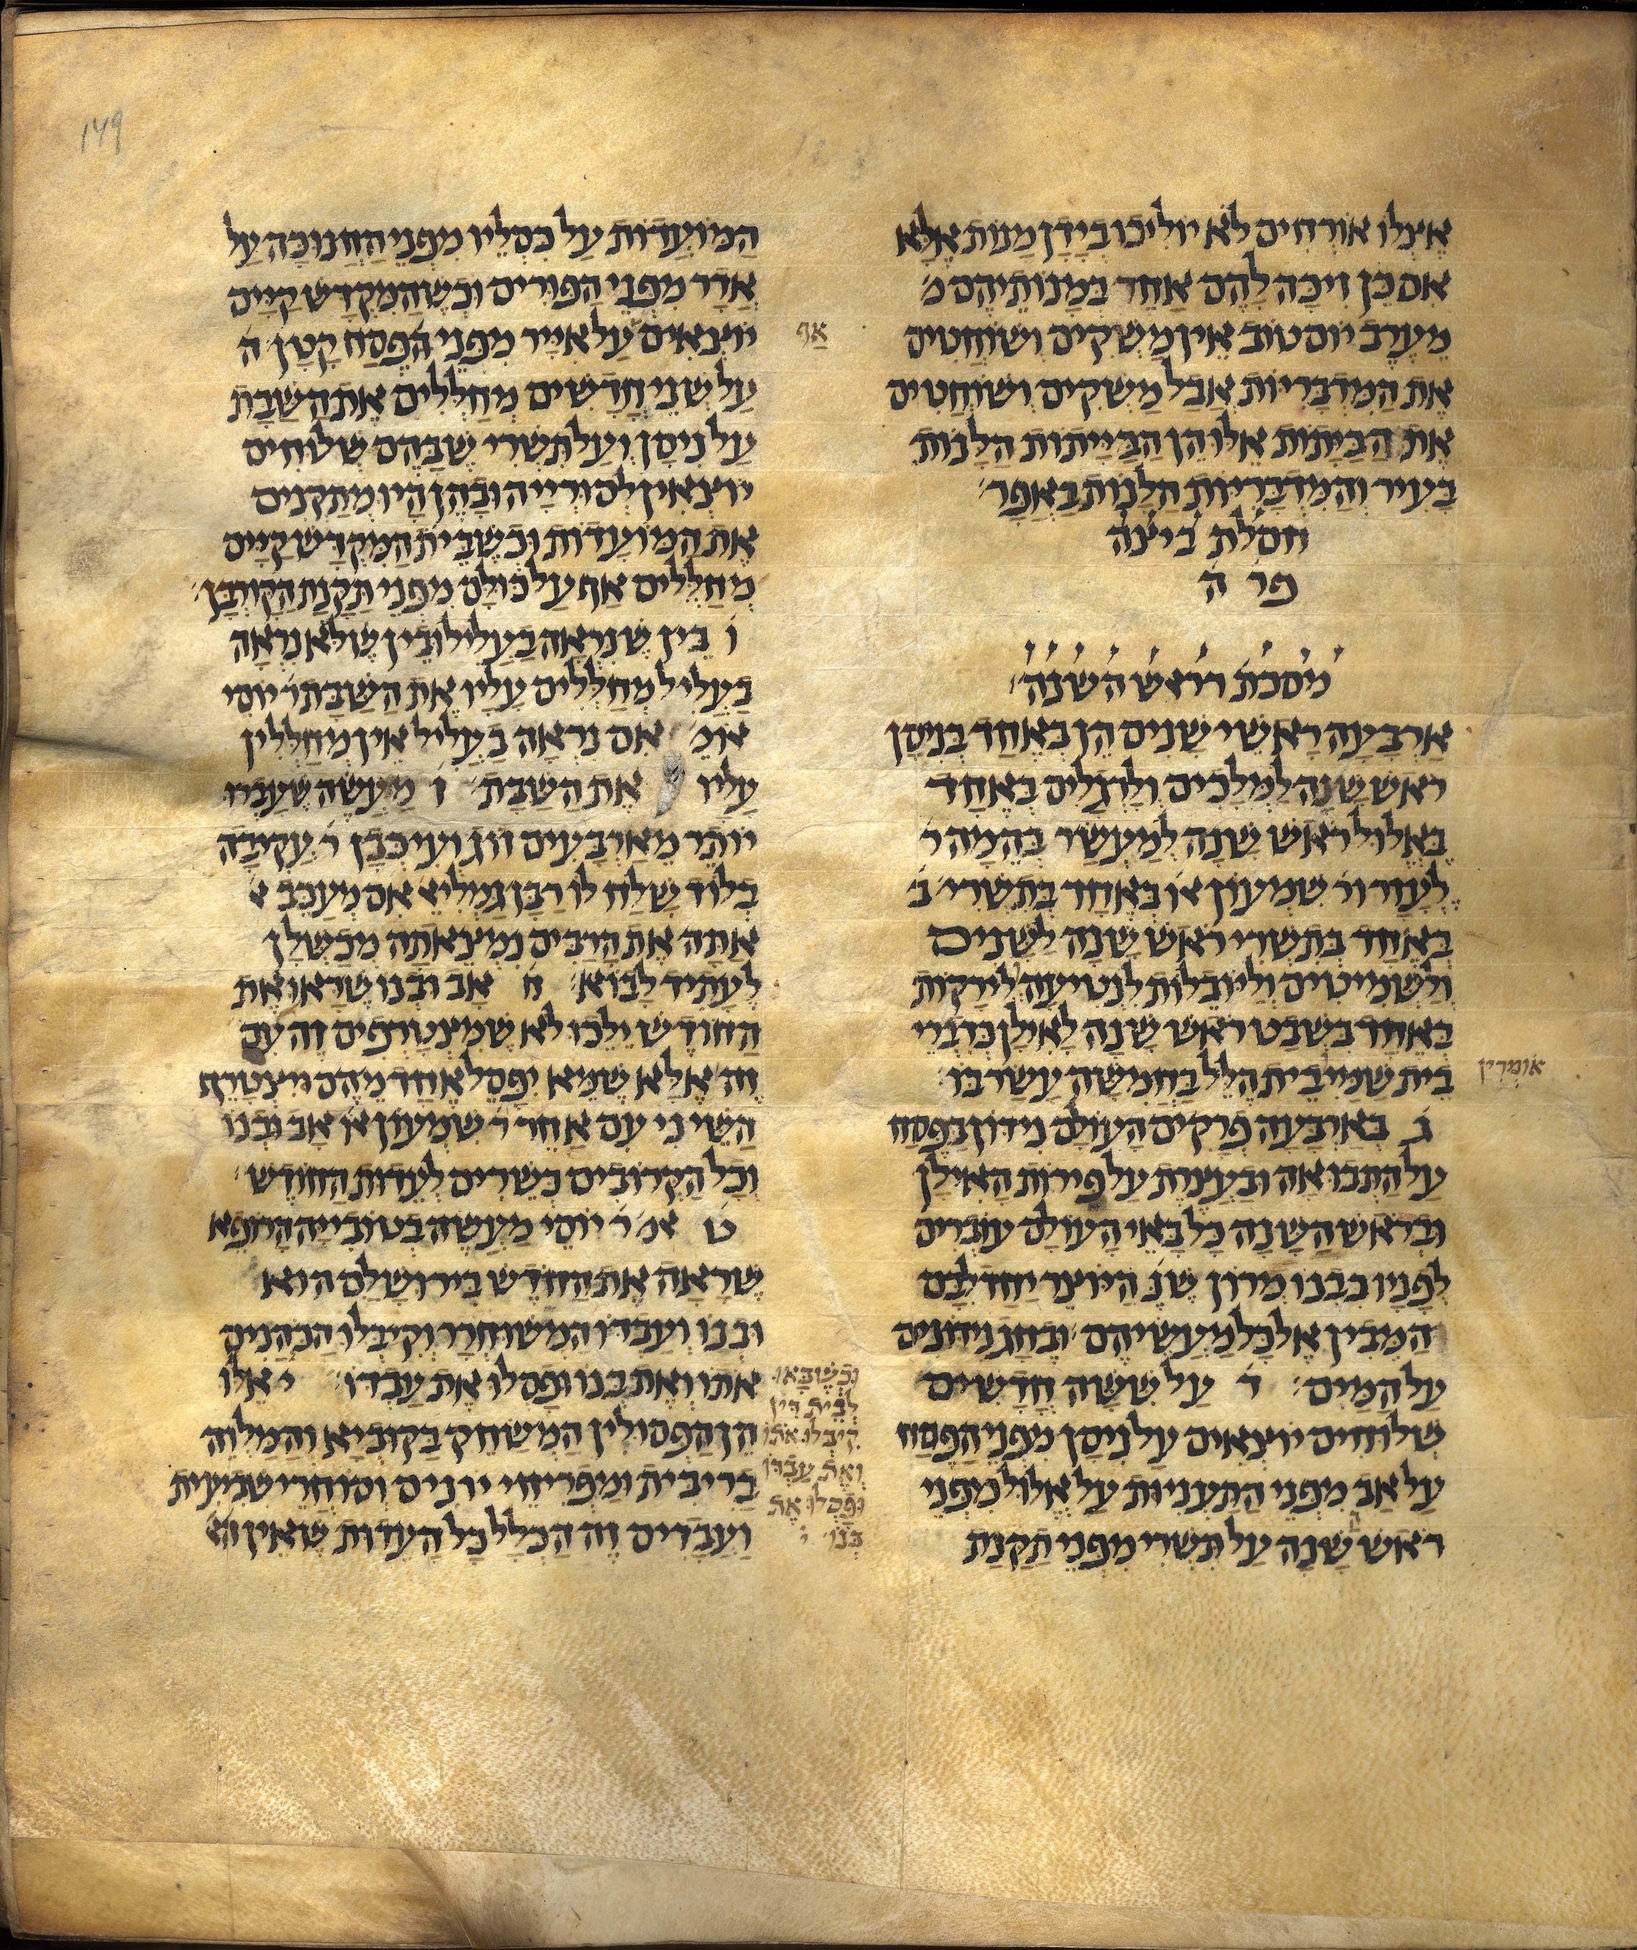 149
אצלו אורחים לא יוליכו בידן מנות אלא
אם כן זיכה להם אחד במנותיהם מ׳
מערב יום טוב אין משקים ושוחטים
את המדבריות אבל משקים ושוחטים
את הבַּיָתות אלו הן הבייתות הלנות
בעיר והמדבריות הלנות באפר׳
חסלת ביצה
פר׳ ה׳
מסכת דראש השנה
ארבעה ראשי שנים הן באחד בניסן
ראש שנה למלכים ולרגלים באחד
באלול ראש שנה למעשר בהמה ר׳
לעזר ור׳ שמעון או׳ באחד בתשרי ב׳
באחד בתשרי ראש שנה לשנים
ולשמיטים וליובלות לנטיעה לירקות
באחד בשבט ראש שנה לאילן כדברי
אומרין
בית שמיי בית הלל בחמישה עשר בו
ג בארבעה פרקים העולם נידון בפסח
על התבואה ובעצרת על פירות האילן
ובראש השנה כל באי העולם עוברים
לפניו כבנו מרון שנ׳ היוצר יחד לבם
המבין אל כל מעשיהם ובחג נידונים
על המים׃ ד׳ על ששה חדשים
שלוחים יוצאים על ניסן מפני הפסח
על אב מפני התעניות על אלול מפני
ראש שנה על תשרי מפני תקנת
המועדות על כסליו מפני החנוכה על
אדר מפני הפורים וכשהמקדש קיים
אף
יוצאים על אייר מפני הפסח קטן ה׳
על שני חדשים מחללים את השבת
על ניסן ועל תשרי שבהם שלוחים
יוצאין לסורייה ובהן היו מתקנים
את המועדות וכשבית המקדש קיים
מחללים אף על כולם מפני תקנת הקורבן
ו בין שנראה בעליל ובין שלא נראה
בעליל מחללים עליו את השבת ר׳ יוסי
אומ׳ אם נראה בעליל אין מחללין
עליו את השבת׳ ז מעשה שעברו
יותר מארבעים זוג ועיכבן ר׳ עקיבה
בלוד שלח לו רבן גמליא׳ אם מעכב א׳
אתה את הרבים נמצאתה מכשילן
לעתיד לבוא׳ ח אב ובנו שראו את
החודש ילכו לא שמצטרפים זה עם
זה אלא שמא יפסל אחד מהם מיצטרף
השיני עם אחר ר׳ שמעון או׳ אב ובנו
וכל הקרובים כשרים לעדות החודש׳
ט אמ׳ ר׳ יוסי מעשה בטובייה הרופא
שראה את החדש בירושלם הוא
ובנו ועבדו המשוחרר וקיבלו הכהנים
אתו ואת בנו ופסלו את עבדו׳ י׳ אלו
וכשבאו
לבית דין
קיבלו אתו
ואת עבדו
ופסלו את
בנו׳
הן הפסולין המשחק בקוביא והמלוה
בריבית ומפריחי יונים וסוחרי שביעית
ועבדים זה הכלל כל העדות שאין הא׳